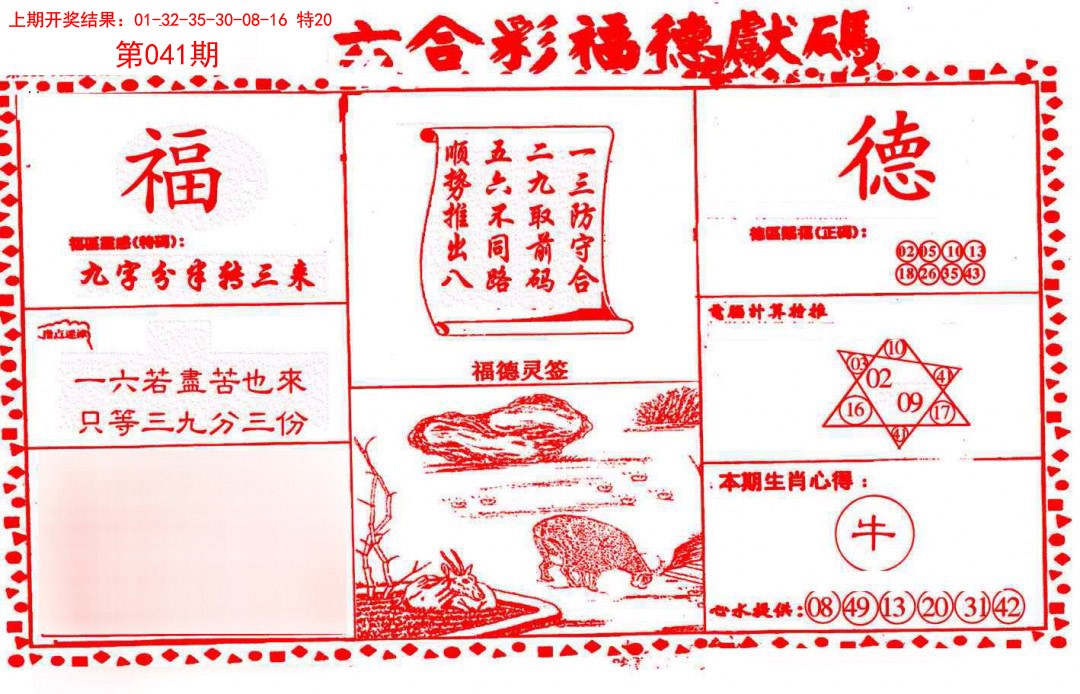 上期开奖结果：01-32-35-30-08-16 特20
第041期
六合彩福德獻碼
福
福區靈感(特碼)：
九字分半转三来
一六若盡苦也來
只等三九分三份
一三防守合
二九取前码
五六不同路
顺势推出八
福德灵签
德
德區賜福(正碼)：
02 05 10 13
18 26 35 43
電腦計算拾推
10
03 02 41
16 09 17
41
本期生肖心得：
牛
心水提供：08 49 13 20 31 42